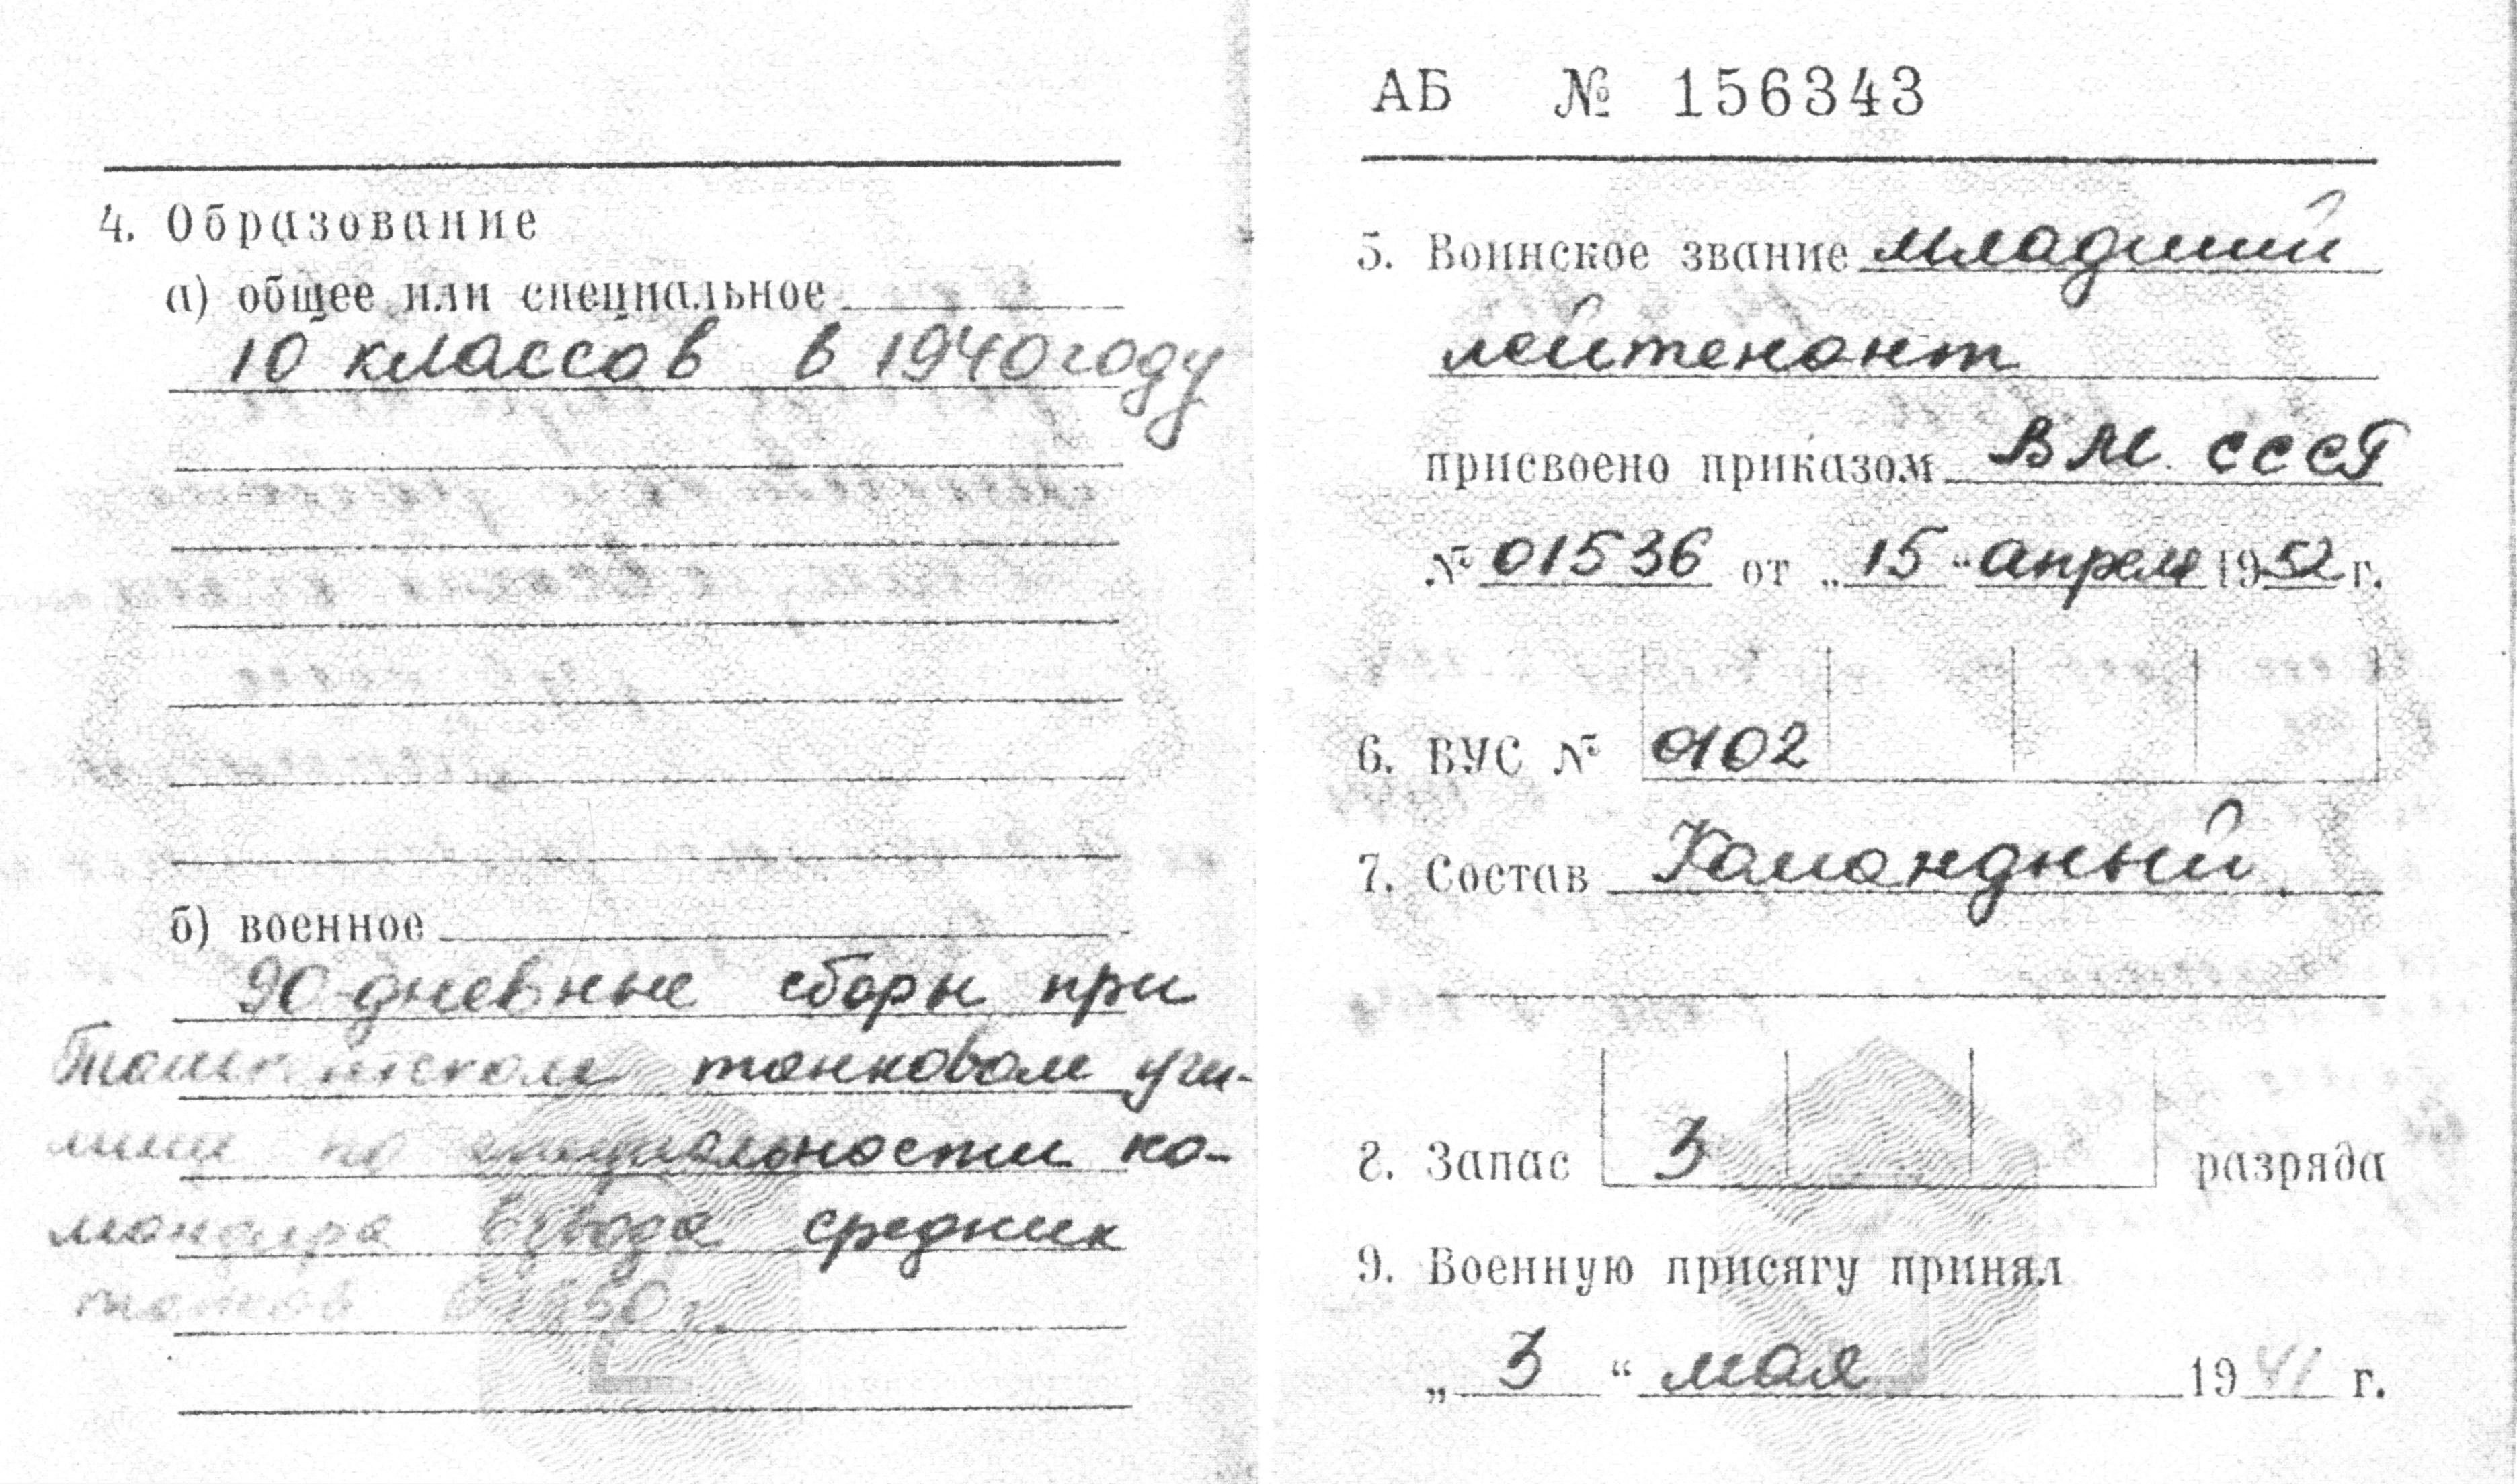 4. Образование
а) общее или специальное
10 классов в 1940 году
б) военное
90-дневные сборы при
Ташкентском танковом учи-
лище по специальности ко-
мандира взвода средних
танков в 1950 г.
АБ № 156343
5. Воинское звание младший
лейтенант
присвоено приказом ВМ СССР
№ 01536 от „15“ апреля 1952 г.
6. ВУС № 0102
7. Состав Командный.
8. Запас 3 разряда
9. Военную присягу принял
„3“ мая 1941 г.